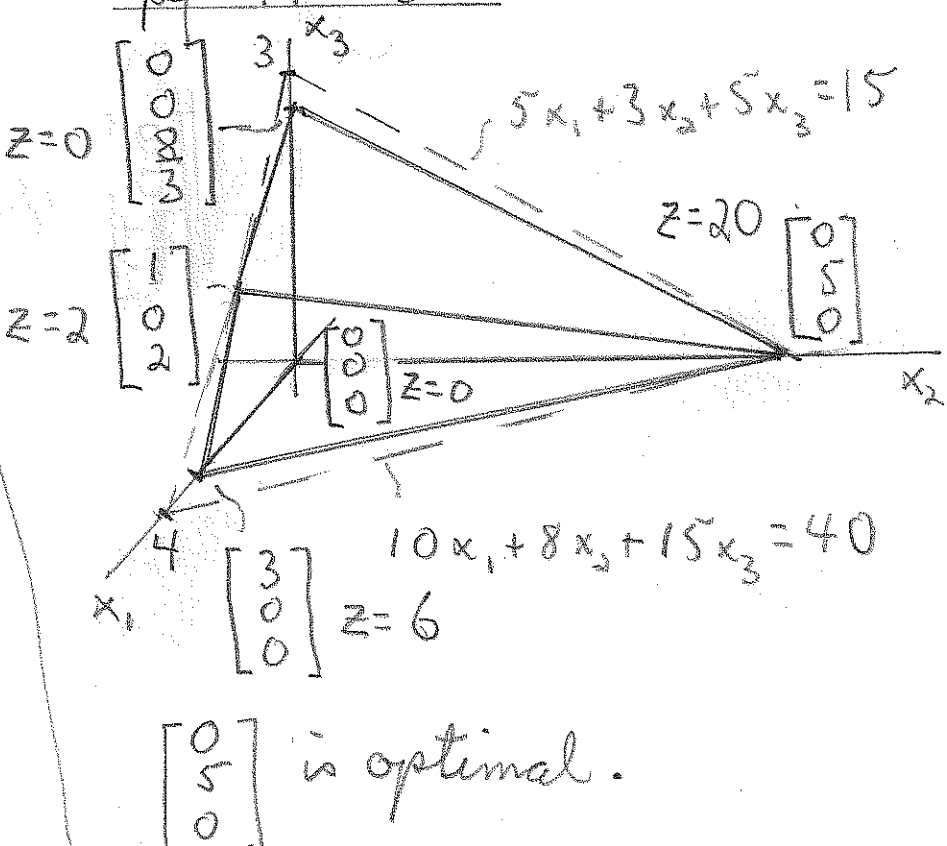 3 x₃
[0 0 8/3]
z=0
5x₁+3x₂+5x₃=15
z=20 [0 5 0]
z=2 [1 0 2]
[0 0 0] z=0
x₂
4
x₁
10x₁+8x₂+15x₃=40
[3 0 0] z=6
[0 5 0] is optimal.